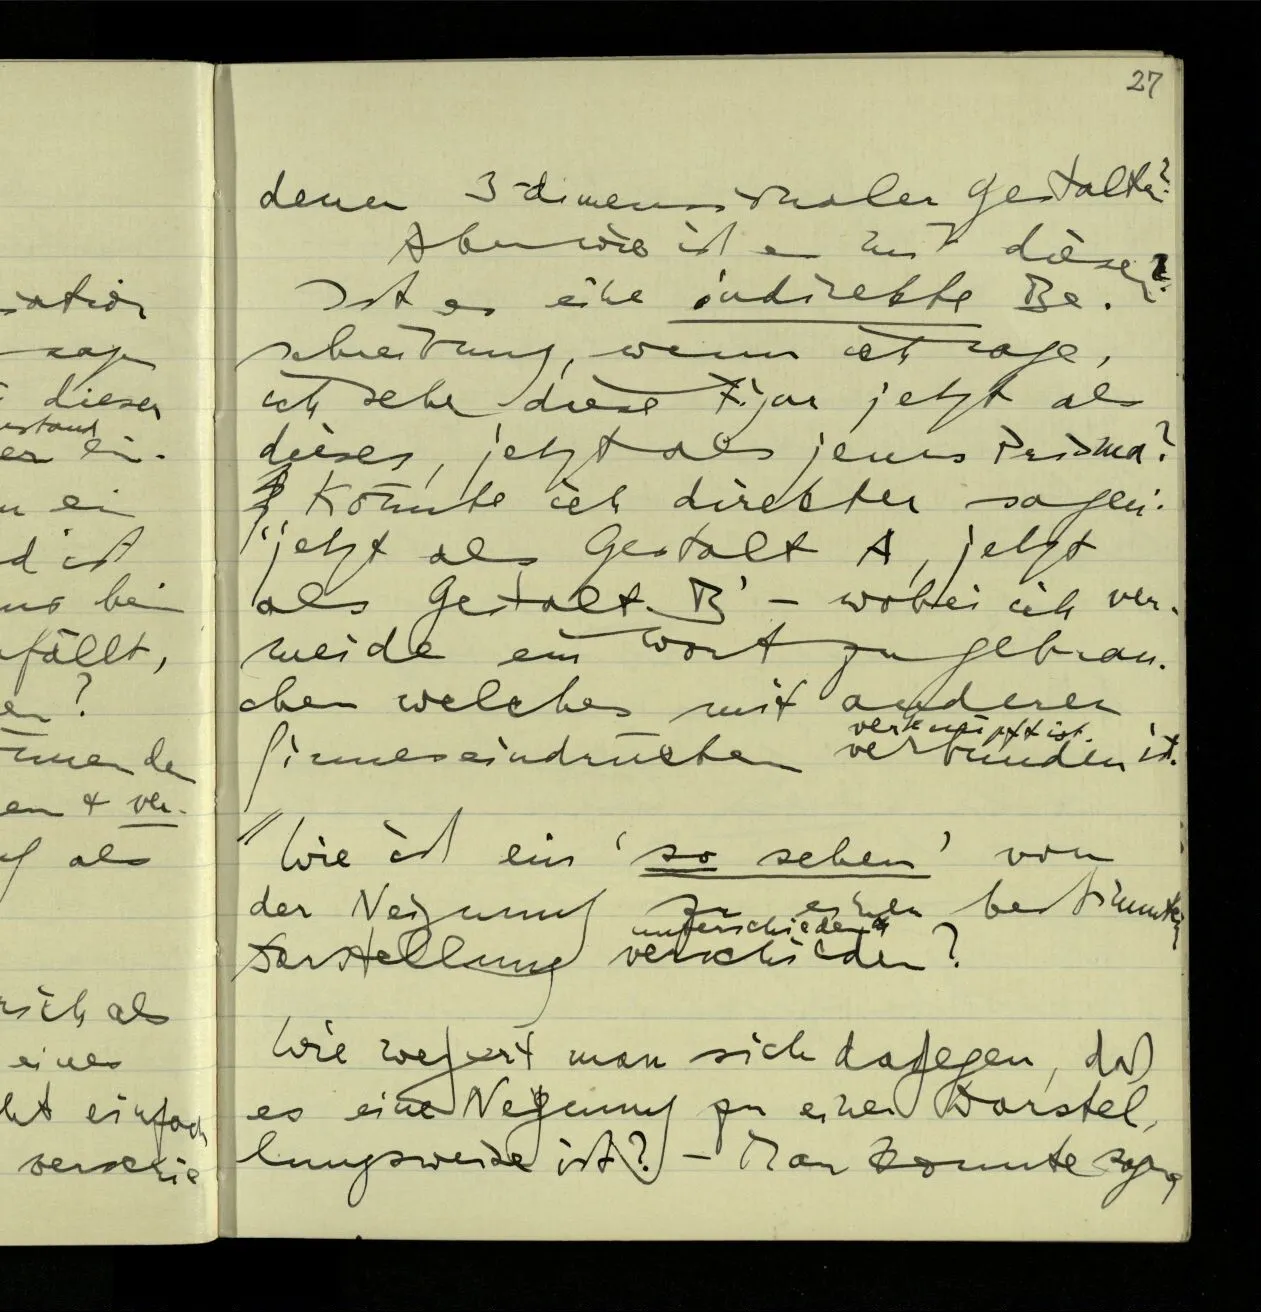 27
sation
sage
dieser
ein
d ist
fällt,
en?
en & ver-
als
sich als
eines
einfach
verschie
denen 3-dimensionaler Gestalten?
Aber wie ist es mit diesen?
Ist es eine indirekte Be-
schreibung, wenn ich sage,
ich sehe diese Figur jetzt als
dieses, jetzt als jenes Prisma?
Könnte ich direkter sagen:
"jetzt als Gestalt A, jetzt
als Gestalt B" – wobei ich ver-
meide ein Wort zu gebrau-
chen welches mit anderen
verknüpft ist.
Sinneseindrücken verbunden ist.
// Wie ist ein 'so sehen' von
der Neigung zu einer bestimmten
unterschieden
Darstellung verschieden?
Wie wehrt man sich dagegen, daß
es eine Neigung zu einer Darstel-
lungsweise ist? – Man könnte sagen